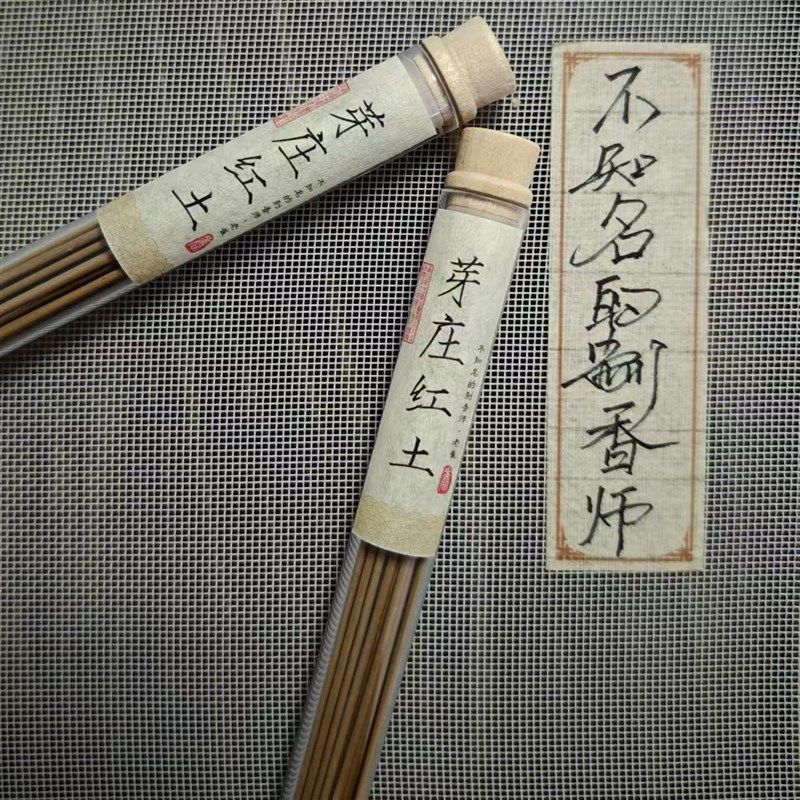 芽庄红土
不知名的制香师·老崔
芽庄红土
不知名的制香师·老崔
不知名的制香师